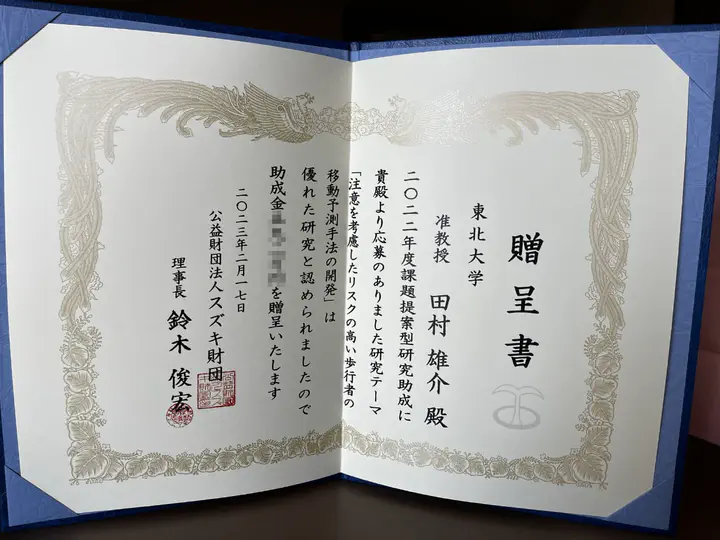 贈呈書
東北大学
准教授 田村 雄介 殿
二〇二二年度課題提案型研究助成に
貴殿より応募のありました研究テーマ
「注意を考慮したリスクの高い歩行者の
移動予測手法の開発」は
優れた研究と認められましたので
助成金を贈呈いたします
二〇二三年二月一七日
公益財団法人スズキ財団
理事長 鈴木 俊宏